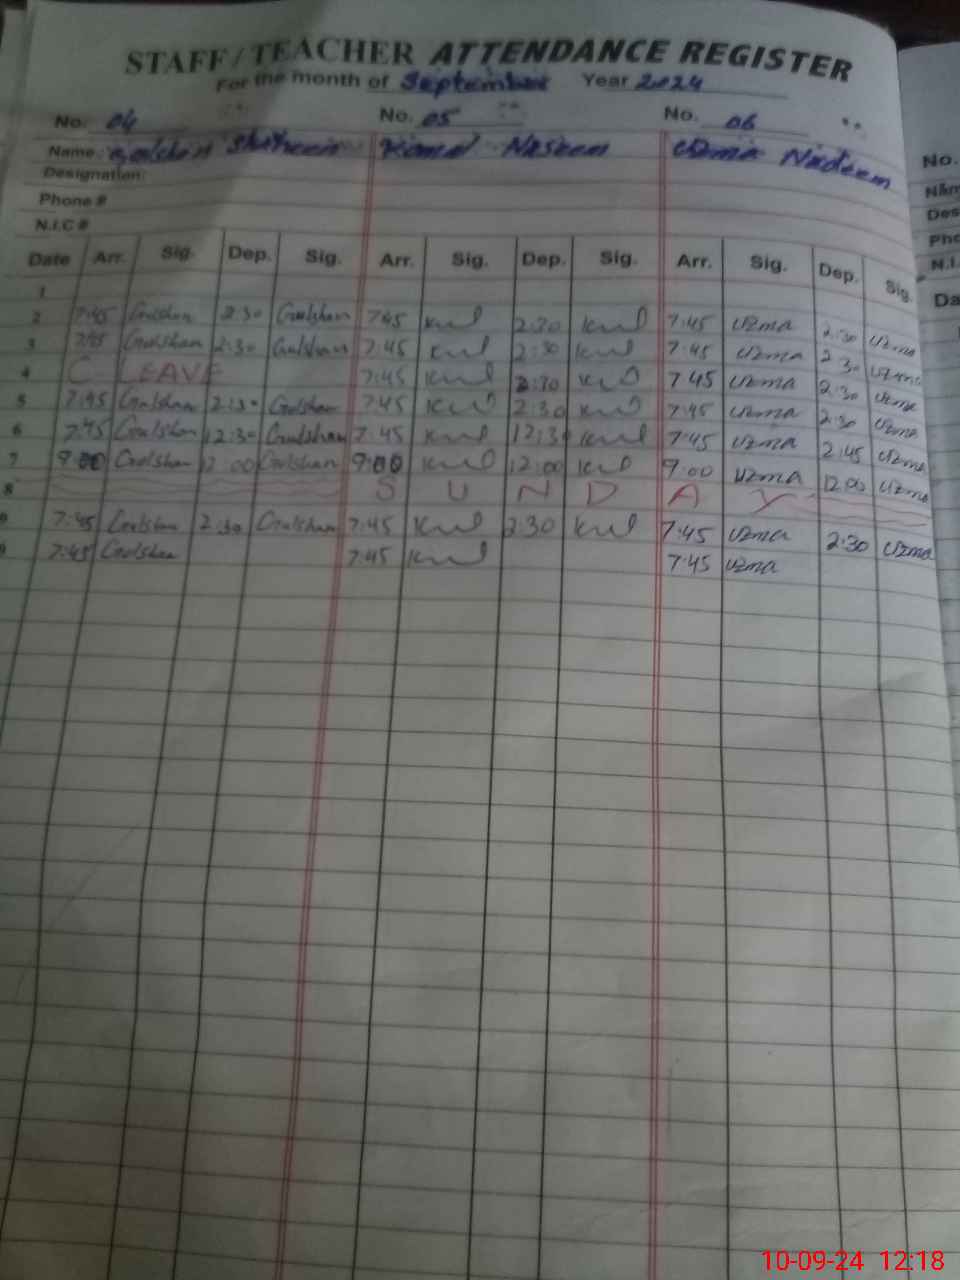 STAFF/TEACHER ATTENDANCE REGISTER
For the month of September Year 2024
No. 04 No. 05 No. 06
Name: Gulshan Shaheen Komal Naseem Uzma Nadeem No.
Designation: Nam
Phone # Des
N.I.C # Pho
N.I.
Date Arr. Sig. Dep. Sig. Arr. Sig. Dep. Sig. Arr. Sig. Dep. Sig. Da
1
2 7:45 Gulshan 2:30 Gulshan 7:45 2:30 7:45 Uzma 2:30 Uzma
3 7:45 Gulshan 2:30 Gulshan 7:45 2:30 7:45 Uzma 2:30 Uzma
4 C LEAVE 7:45 2:30 7 45 Uzma 2:30 Uzma
5 7:45 Gulshan 2:30 Gulshan 7:45 2:30 7:45 Uzma 2:30 Uzma
6 7:45 Gulshan 12:30 Gulshan 7:45 12:30 7:45 Uzma 2:45 Uzma
7 9:00 Gulshan 12:00 Gulshan 9:00 12:00 9:00 Uzma 12:00 Uzma
8 S U N D A Y
7:45 Gulshan 2:30 Gulshan 7:45 2:30 7:45 Uzma 2:30 Uzma
7:45 Gulshan 7:45 7:45 Uzma
10-09-24 12:18